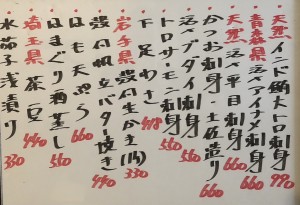 天然 インド鮪大トロ刺身 990
青森県 活〆アイナメ刺身 660
天然 活〆平目刺身 660
かつお刺身・土佐造り 660
活〆ブダイ刺身 550
トロサーモン刺身 550
下足わさ 418
岩手県 殻付生かき(1ヶ) 330
殻付帆立バター焼き 440
はも天ぷら 660
はまぐり酒蒸し 550
埼玉県 茶豆 440
水茄子浅漬り 330